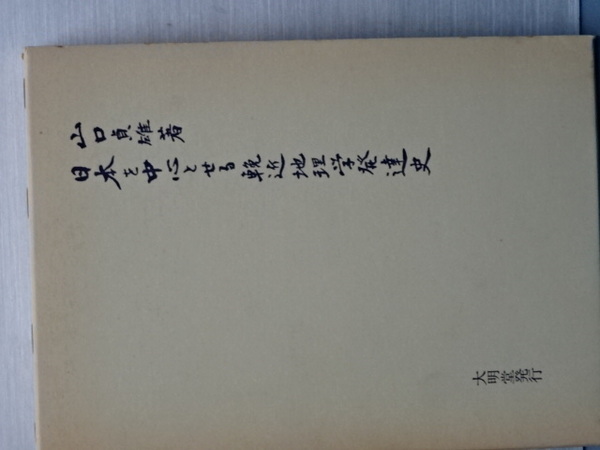 山口貞雄著
日本を中心とせる輓近地理学発達史
大明堂発行